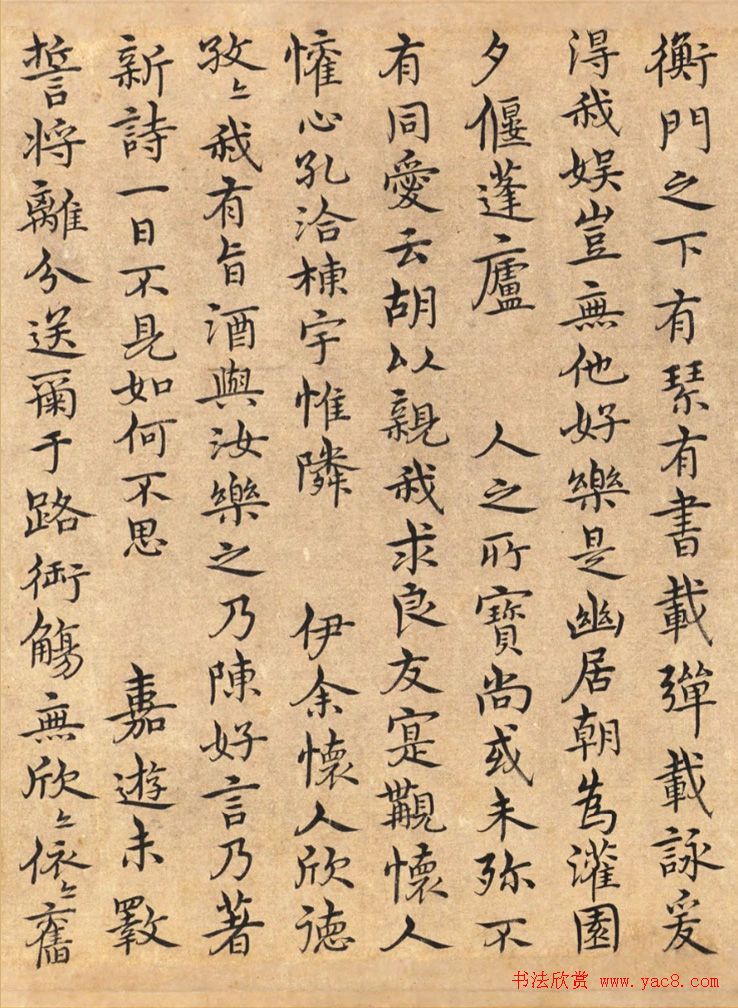 衡門之下有琴有書載彈載詠爰
得我娱豈無他好樂是幽居朝為灌園
夕偃蓬廬　人之所寶尚或未珎不
有同愛云胡以親我求良友寔覯懷人
懽心孔洽棟宇惟隣　伊余懷人欣德
孜〻我有旨酒與汝樂之乃陳好言乃著
新詩一日不見如何不思　嘉遊未斁
誓将離分送爾于路衘觴無欣〻依〻舊
书法欣赏 www.yac8.com